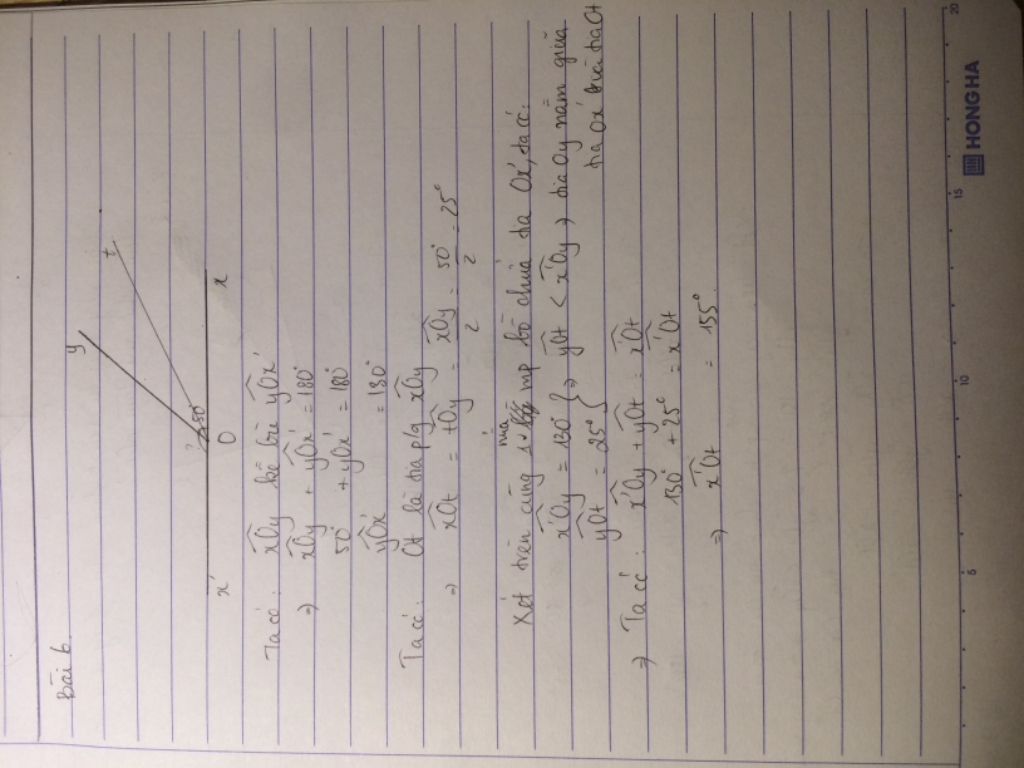 Bài 6
y
t
? 50°
x'
O
x
Ta có: xOy kề bù yOx'
=> xOy + yOx' = 180°
50° + yOx' = 180°
yOx' = 130°
Ta có: Ot là tia p/g xOy
=> xOt = tOy = xOy/2 = 50°/2 = 25°
Xét trên cùng 1 nửa mp bờ chứa tia Ox', ta có:
x'Oy = 130° } => yOt < x'Oy => tia Oy nằm giữa
yOt = 25° tia Ox' và tia Ot
=> Ta có: x'Oy + yOt = x'Ot
130° + 25° = x'Ot
=> x'Ot = 155°
5 10 15 20
HONG HA